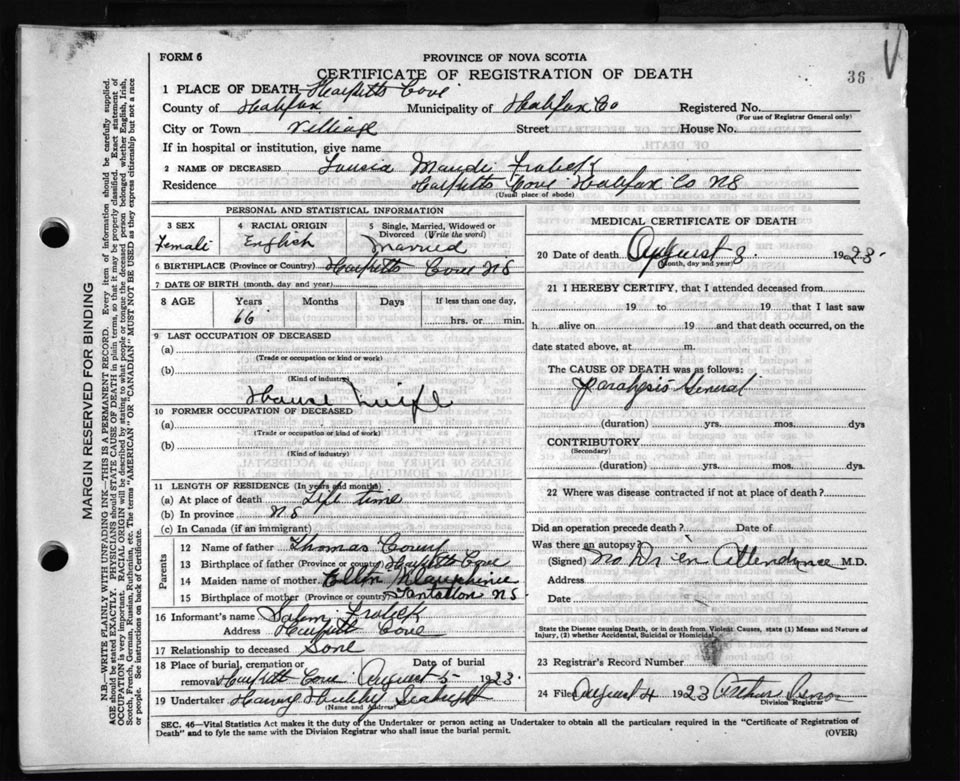 FORM 6
PROVINCE OF NOVA SCOTIA
CERTIFICATE OF REGISTRATION OF DEATH
36
1 PLACE OF DEATH Cove
County of Halifax Municipality of Halifax Co Registered No.
(For use of Registrar General only)
City or Town Village Street House No.
If in hospital or institution, give name
2 NAME OF DECEASED
Residence Cove Halifax Co NS
(Usual place of abode)
PERSONAL AND STATISTICAL INFORMATION
3 SEX 4 RACIAL ORIGIN 5 Single, Married, Widowed or Divorced (Write the word)
Female English Married
6 BIRTHPLACE (Province or Country) Cove NS
7 DATE OF BIRTH (month, day and year)
8 AGE Years Months Days If less than one day,
66 hrs. or min.
9 LAST OCCUPATION OF DECEASED
(a)
(Trade or occupation or kind of work)
(b)
(Kind of industry)
House Wife
10 FORMER OCCUPATION OF DECEASED
(a)
(Trade or occupation or kind of work)
(b)
(Kind of industry)
11 LENGTH OF RESIDENCE (In years and months)
(a) At place of death Life time
(b) In province NS
(c) In Canada (if an immigrant)
Parents
12 Name of father Thomas
13 Birthplace of father (Province or country) Cove
14 Maiden name of mother Ellen
15 Birthplace of mother (Province or country) Tantallon NS
16 Informant's name
Address Cove
17 Relationship to deceased Sone
18 Place of burial, cremation or removal Cove Date of burial August 5 1923
19 Undertaker Harvey Hubley Seabright
(Name and Address)
MEDICAL CERTIFICATE OF DEATH
20 Date of death August 3 1923
(Month, day and year)
21 I HEREBY CERTIFY, that I attended deceased from
19 to 19 that I last saw
h alive on 19 and that death occurred, on the
date stated above, at m.
The CAUSE OF DEATH was as follows:
Paralysis General
(duration) yrs. mos. dys
CONTRIBUTORY
(Secondary)
(duration) yrs. mos. dys
22 Where was disease contracted if not at place of death?
Did an operation precede death? Date of
Was there an autopsy?
(Signed) No Dr in Attendance M.D.
Address
Date
State the Disease causing Death, or in death from Violent Causes, state (1) Means and Nature of
Injury, (2) whether Accidental, Suicidal or Homicidal
23 Registrar's Record Number
24 Filed August 4 1923 Arthur
Division Registrar
SEC. 46—Vital Statistics Act makes it the duty of the Undertaker or person acting as Undertaker to obtain all the particulars required in the "Certificate of Registration of
Death" and to fyle the same with the Division Registrar who shall issue the burial permit.
(OVER)
MARGIN RESERVED FOR BINDING
N.B.—WRITE PLAINLY WITH UNFADING INK—THIS IS A PERMANENT RECORD. Every item of information should be carefully supplied.
AGE should be stated EXACTLY. PHYSICIANS should STATE CAUSE OF DEATH in plain terms, so that it may be properly classified. Exact statement of
OCCUPATION is very important. RACIAL ORIGIN will be described by stating to what people or tongue the deceased person belonged whether English, Irish,
Scotch, French, German, Russian, Ruthenian, etc. The terms "AMERICAN" OR "CANADIAN" MUST NOT BE USED as they express citizenship but not a race
or people. See instructions on back of Certificate.